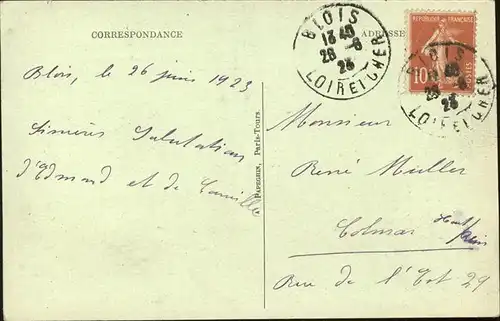 CORRESPONDANCE
ADRESSE
BLOIS
13 40
26 -6
23
LOIR ET CHER
REPUBLIQUE FRANÇAISE
10
POSTES
BLOIS
40
23
LOIR ET CHER
Blois, le 26 juin 1923
Sincères Salutations
d'Edmond et de Camille
PAPEGHIN, Paris-Tours.
Monsieur
René Muller
Colmar Haut/Rhin
Rue de l'Est 29